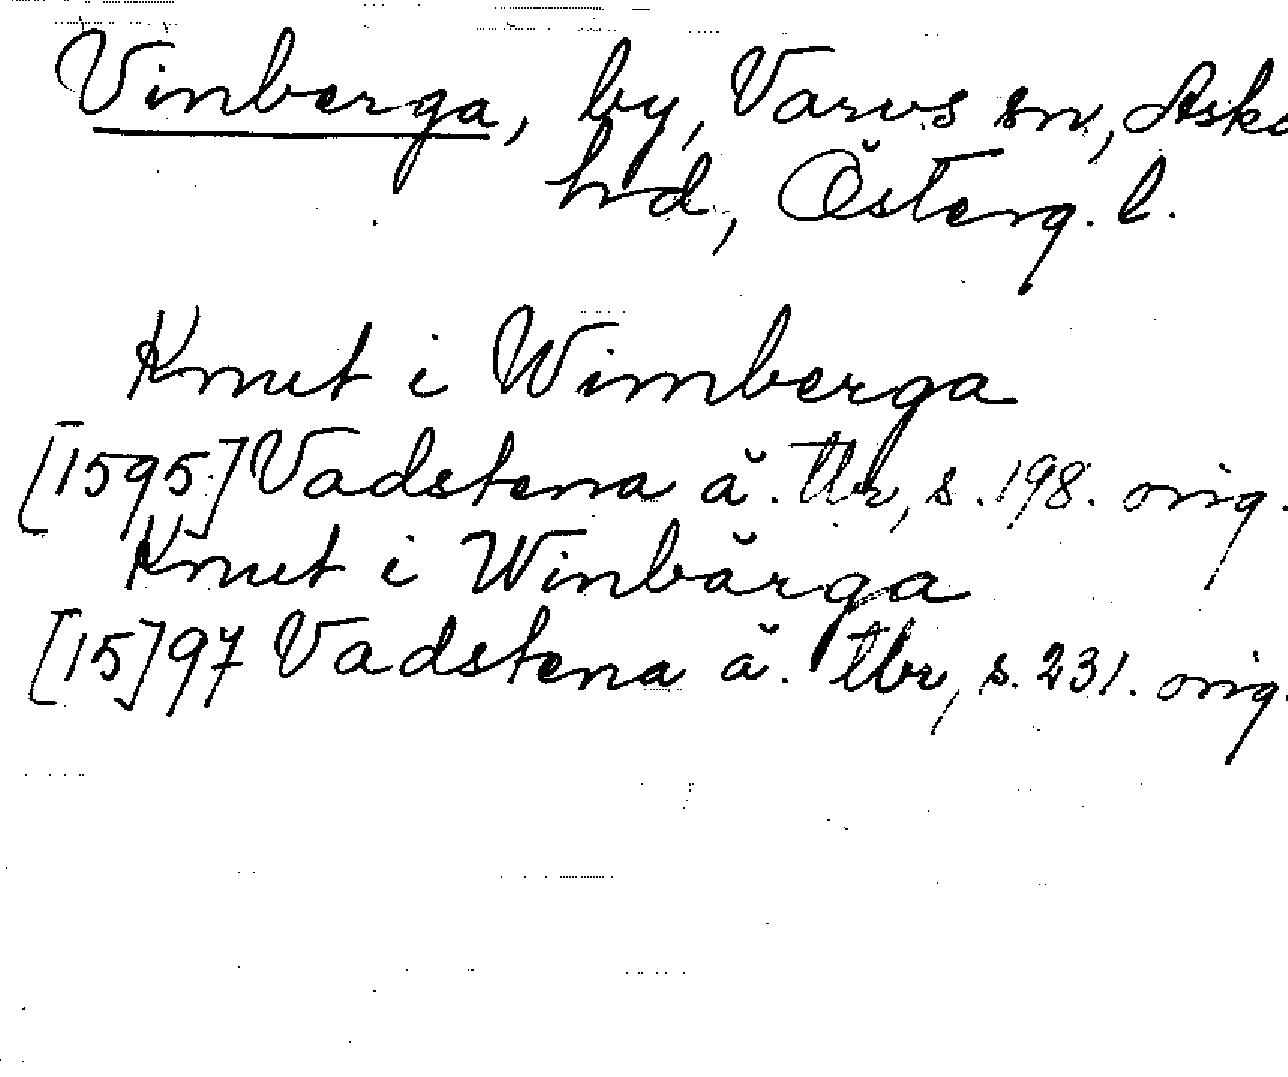 Vinberga, by, Varvs sn, Aska
hd, Österg. l.
Knut i Wimberga
[1595] Vadstena ä. tbr, s. 198. orig.
Knut i Winbärga
[15]97 Vadstena ä. tbr, s. 231. orig.